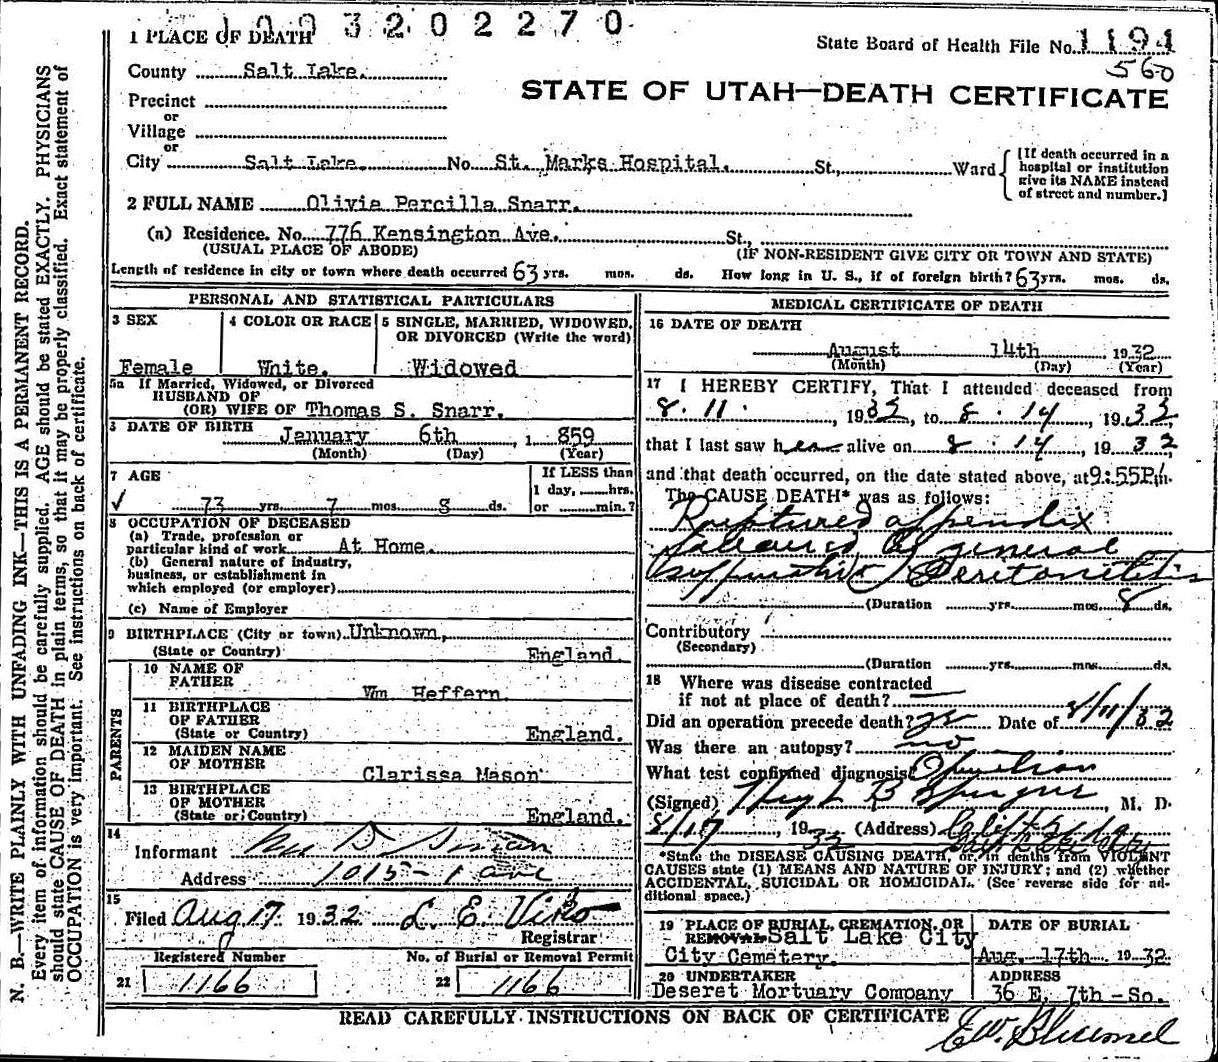 1093202270
1 PLACE OF DEATH
State Board of Health File No. 1194
560
County Salt Lake.
STATE OF UTAH—DEATH CERTIFICATE
Precinct
or
Village
or
City Salt Lake. No. St. Marks Hospital. St., Ward
[If death occurred in a hospital or institution give its NAME instead of street and number.]
2 FULL NAME Olivia Percilla Snarr.
(a) Residence. No. 776 Kensington Ave. St.,
(USUAL PLACE OF ABODE) (IF NON-RESIDENT GIVE CITY OR TOWN AND STATE)
Length of residence in city or town where death occurred 63 yrs. mos. ds. How long in U. S., if of foreign birth? 63 yrs. mos. ds.
PERSONAL AND STATISTICAL PARTICULARS
3 SEX 4 COLOR OR RACE 5 SINGLE, MARRIED, WIDOWED,
OR DIVORCED (Write the word)
Female White. Widowed
5a If Married, Widowed, or Divorced
HUSBAND OF
(OR) WIFE OF Thomas S. Snarr.
DATE OF BIRTH
January 6th, 1 859
(Month) (Day) (Year)
7 AGE If LESS than
1 day, hrs.
73 yrs. 7 mos. 8 ds. or min.?
8 OCCUPATION OF DECEASED
(a) Trade, profession or
particular kind of work At Home.
(b) General nature of industry,
business, or establishment in
which employed (or employer)
(c) Name of Employer
9 BIRTHPLACE (City or town) Unknown,
(State or Country) England.
PARENTS
10 NAME OF
FATHER Wm Heffern
11 BIRTHPLACE
OF FATHER
(State or Country) England.
12 MAIDEN NAME
OF MOTHER Clarissa Mason
13 BIRTHPLACE
OF MOTHER
(State or Country) England.
14
Informant
Address 1015 - 1 ave
15
Filed Aug 17 1932 L. E. Viko
Registrar
Registered Number No. of Burial or Removal Permit
21 1166 22 1166
MEDICAL CERTIFICATE OF DEATH
16 DATE OF DEATH
August 14th 1932
(Month) (Day) (Year)
17 I HEREBY CERTIFY, That I attended deceased from
8.11. , 1932, to 8.14 , 1932,
that I last saw her alive on 8.14, 1932
and that death occurred, on the date stated above, at 9:55P.m.
The CAUSE DEATH* was as follows:
Ruptured appendix
followed by general
suppurative Peritonitis
(Duration yrs. mos. 8 ds.
Contributory
(Secondary)
(Duration yrs. mos. ds.
18 Where was disease contracted
if not at place of death?
Did an operation precede death? yes Date of 8/11/32
Was there an autopsy? no
What test confirmed diagnosis Operation
(Signed) M. D.
8/17, 1932 (Address)
*State the DISEASE CAUSING DEATH, or, in deaths from VIOLENT
CAUSES state (1) MEANS AND NATURE OF INJURY; and (2) whether
ACCIDENTAL, SUICIDAL OR HOMICIDAL. (See reverse side for ad-
ditional space.)
19 PLACE OF BURIAL, CREMATION, OR DATE OF BURIAL
REMOVAL Salt Lake City
City Cemetery. Aug. 17th 1932
20 UNDERTAKER ADDRESS
Deseret Mortuary Company 36 E. 7th - So.
READ CAREFULLY INSTRUCTIONS ON BACK OF CERTIFICATE
N. B.—WRITE PLAINLY WITH UNFADING INK—THIS IS A PERMANENT RECORD.
Every item of information should be carefully supplied. AGE should be stated EXACTLY. PHYSICIANS
should state CAUSE OF DEATH in plain terms, so that it may be properly classified. Exact statement of
OCCUPATION is very important. See instructions on back of certificate.